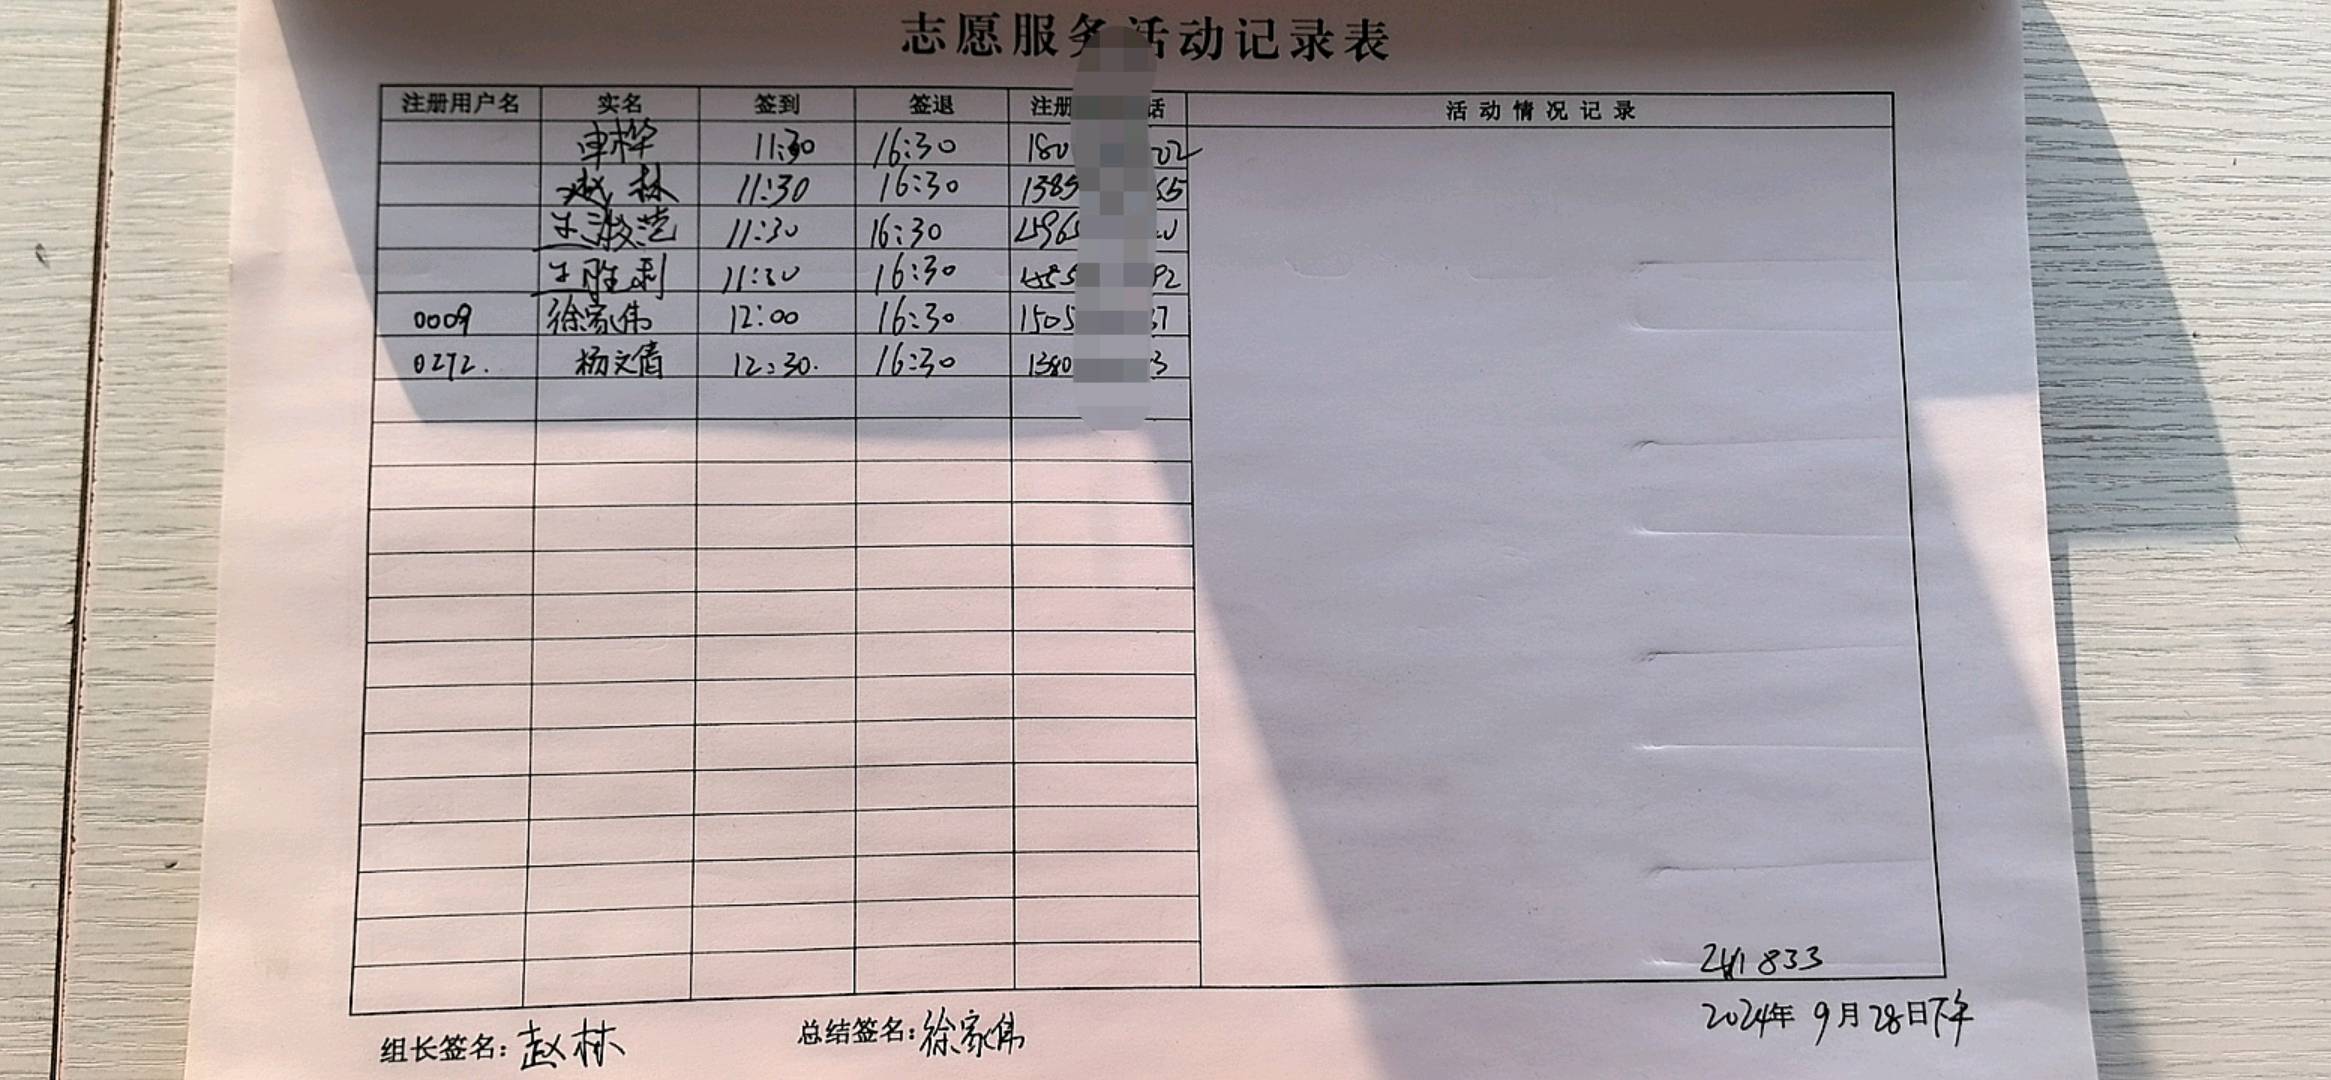 志愿服务活动记录表
注册用户名 实名 签到 签退 注册 话 活动情况记录
申桦 11:30 16:30 180 02
赵林 11:30 16:30 1385 65
王 11:30 16:30 1596
王胜利 11:30 16:30 92
0009 徐家伟 12:00 16:30 1505 37
0272. 杨文倩 12:30. 16:30 1380 3
833
组长签名:赵林 总结签名:徐家伟 2024年9月28日下午